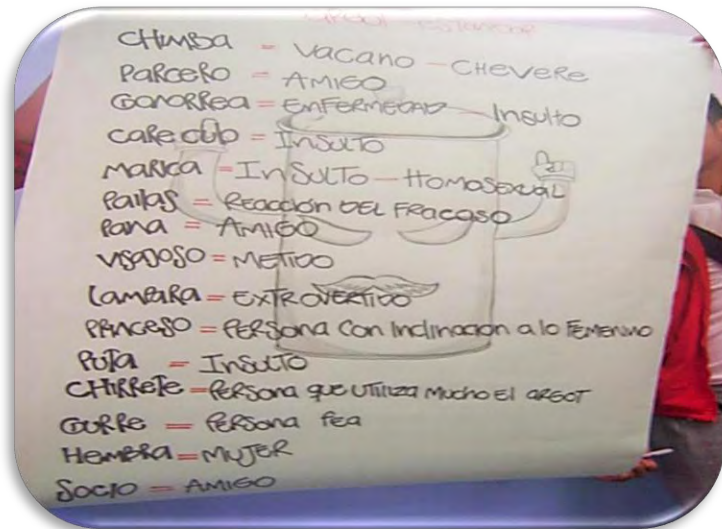 ARGOT ESTANDAR
CHIMBA = VACANO - CHEVERE
PARCERO = AMIGO
GONORREA = ENFERMEDAD - INSULTO
CARE CULO = INSULTO
MARICA = INSULTO - HOMOSEXUAL
PAILAS = REACCIÓN DEL FRACASO
PANA = AMIGO
VISAJOSO = METIDO
LAMPARA = EXTROVERTIDO
PRINCESO = PERSONA CON INCLINACION A LO FEMENINO
PUTA = INSULTO
CHIRRETE = PERSONA QUE UTILIZA MUCHO EL ARGOT
GURRE = PERSONA FEA
HEMBRA = MUJER
SOCIO = AMIGO